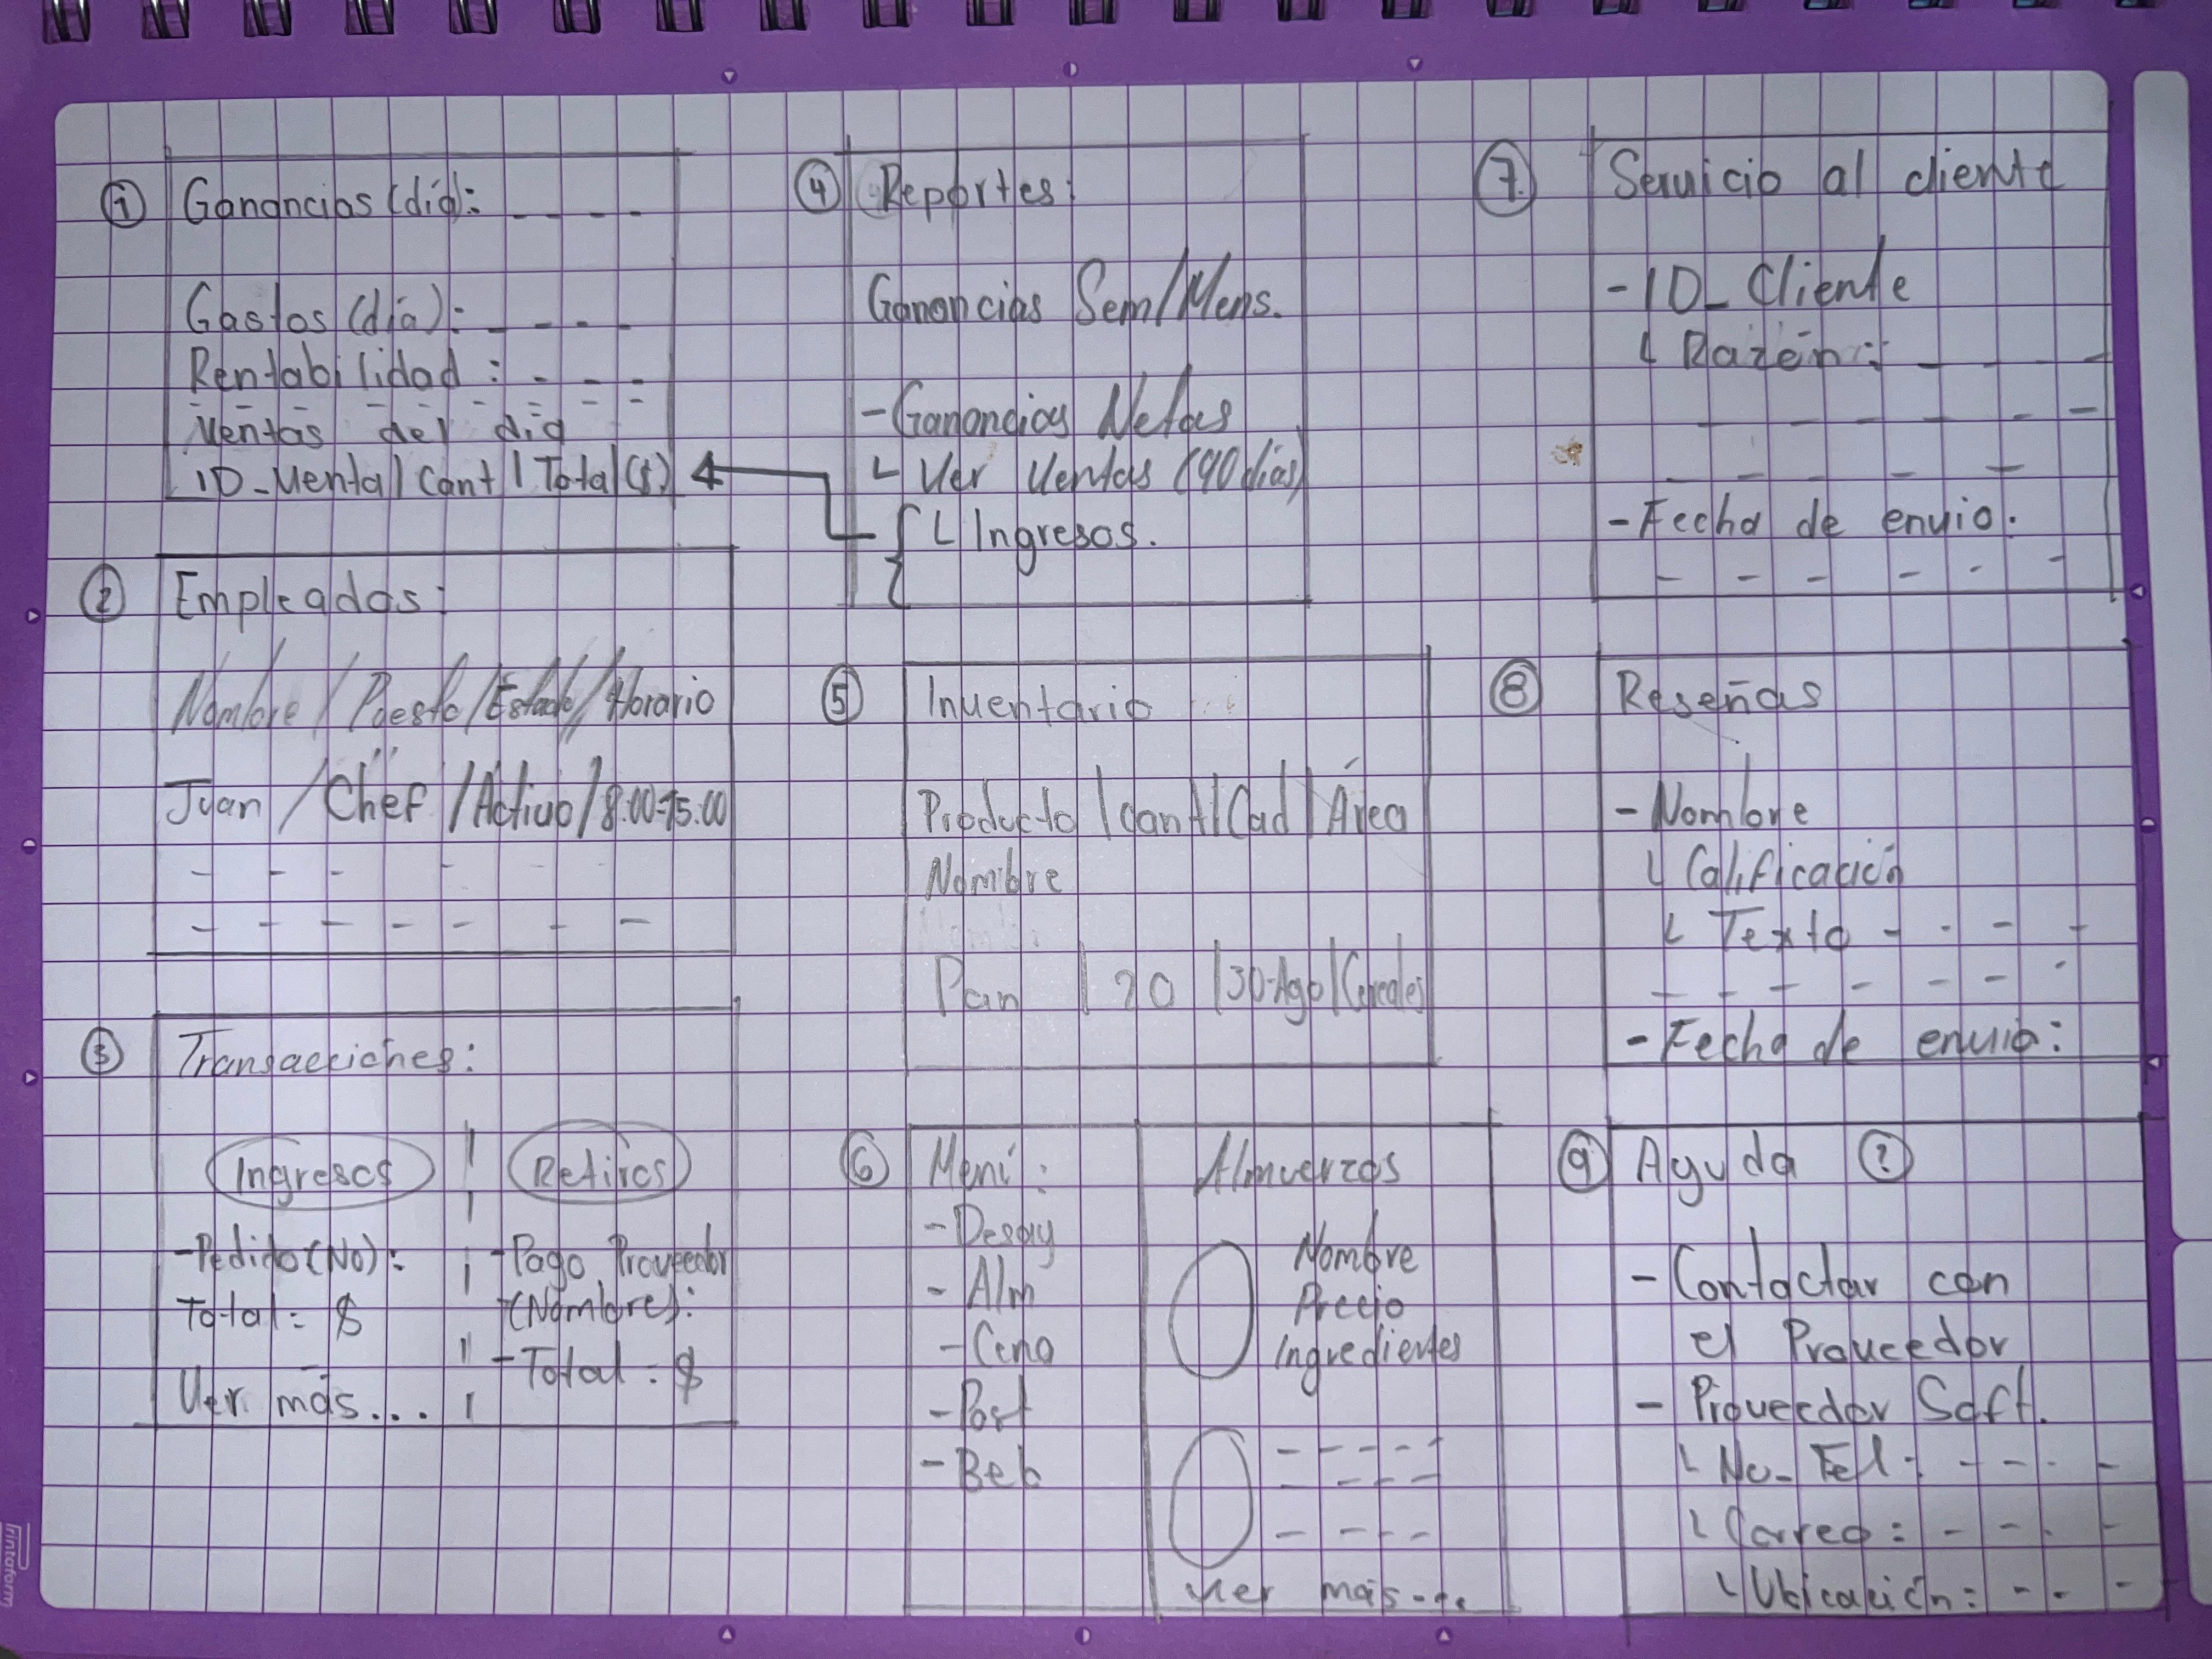 1 Ganancias (día):
Gastos (día):
Rentabilidad:
Ventas del día
ID_Venta | Cant | Total($)
2 Empleados:
Nombre / Puesto / Estado / Horario
Juan / Chef / Activo / 8:00-15:00
3 Transacciones:
Ingresos | Retiros
-Pedido (No):
Total: $
Ver más...
-Pago Proveedor
-(Nombre):
-Total: $
4 Reportes:
Ganancias Sem/Mens.
-Ganancias Netas
Ver Ventas (90 días)
Ingresos.
5 Inventario
Producto | Cant | Cad | Área
Nombre
Pan | 20 | 30-Ago | Cereales
6 Menú:
-Desay
-Alm
-Cena
-Post
-Beb
Almuerzos
Nombre
Precio
Ingredientes
Ver más...
7. Servicio al cliente
-ID_Cliente
Razón:
-Fecha de envio:
8 Reseñas
-Nombre
Calificación
Texto
-Fecha de envio:
9 Ayuda ?
-Contactar con
el Proveedor
- Proveedor Soft.
No_Tel:
Correo:
Ubicación:
Printaform